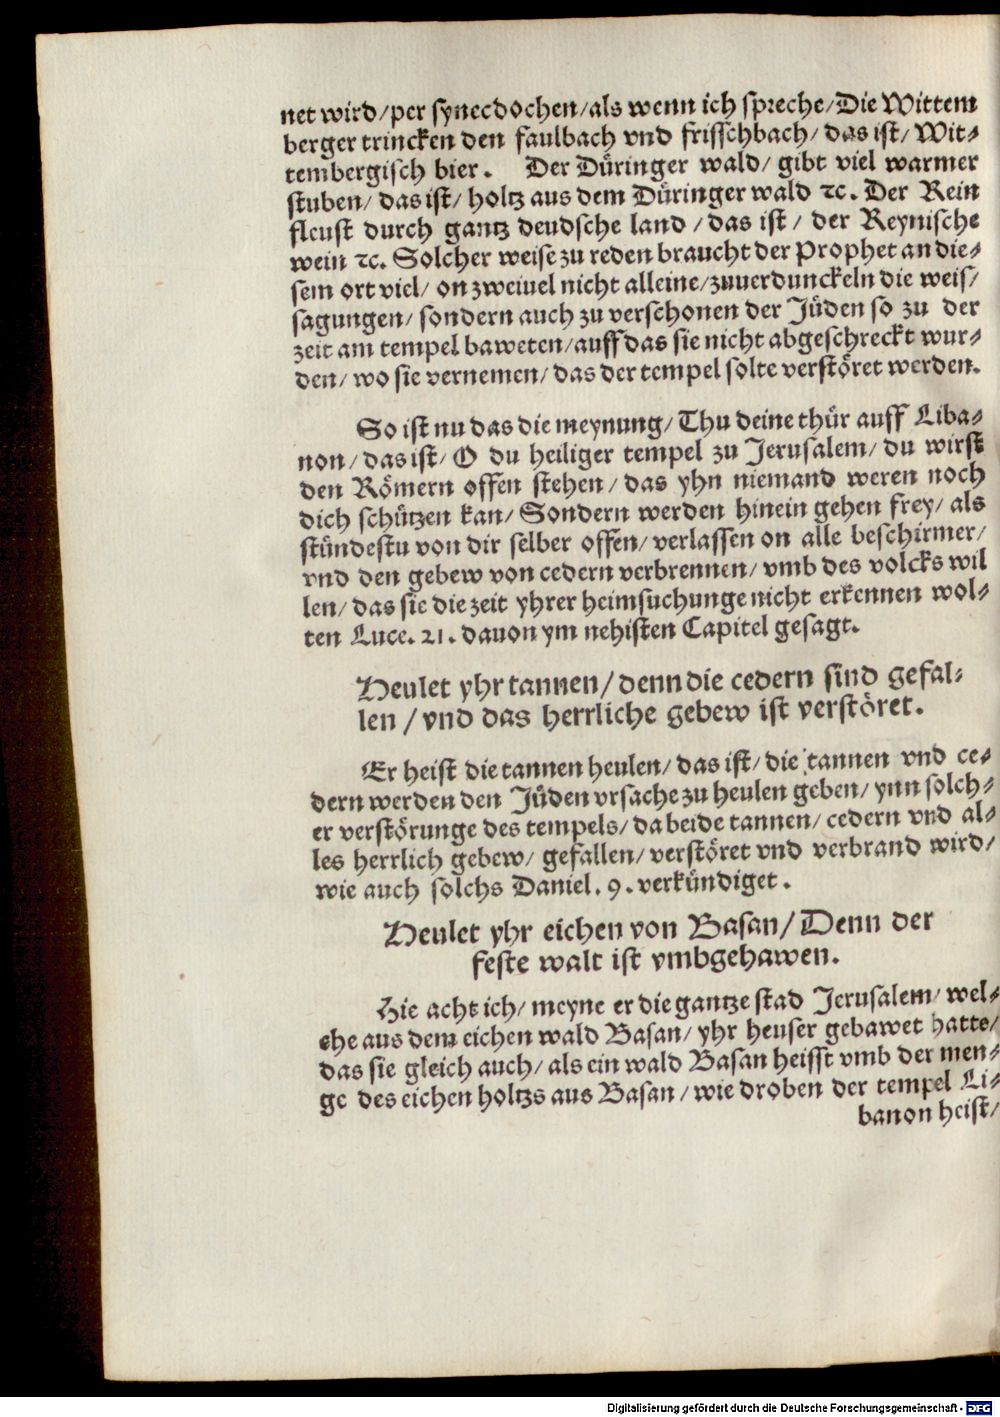 net wird/per synecdochen/als wenn ich spreche/Die Wittem
berger trincken den faulbach vnd frisschbach/das ist/Wit-
tembergisch bier. Der Düringer wald/gibt viel warmer
stuben/das ist/holtz aus dem Düringer wald ꝛc. Der Rein
fleust durch gantz deudsche land/das ist/der Reynische
wein ꝛc. Solcher weise zu reden braucht der Prophet an die-
sem ort viel/on zweiuel nicht alleine/zuuerdunckeln die weis/
sagungen/sondern auch zu verschonen der Jüden so zu der
zeit am tempel baweten/auff das sie nicht abgeschreckt wur-
den/wo sie vernemen/das der tempel solte verstöret werden.
So ist nu das die meynung/Thu deine thür auff Liba-
non/das ist/O du heiliger tempel zu Jerusalem/du wirst
den Römern offen stehen/das yhn niemand weren noch
dich schützen kan/Sondern werden hinein gehen frey/als
stündestu von dir selber offen/verlassen on alle beschirmer/
vnd den gebew von cedern verbrennen/vmb des volcks wil
len/das sie die zeit yhrer heimsuchunge nicht erkennen wol-
ten Luce. 21. dauon ym nehisten Capitel gesagt.
Heulet yhr tannen/denn die cedern sind gefal-
len/vnd das herrliche gebew ist verstöret.
Er heist die tannen heulen/das ist/die tannen vnd ce-
dern werden den Jüden vrsache zu heulen geben/ynn solch-
er verstörunge des tempels/da beide tannen/cedern vnd al-
les herrlich gebew/gefallen/verstöret vnd verbrand wird/
wie auch solchs Daniel. 9. verkündiget.
Heulet yhr eichen von Basan/Denn der
feste walt ist vmbgehawen.
Hie acht ich/meyne er die gantze stad Jerusalem/wel-
che aus dem eichen wald Basan/yhr heuser gebawet hatte/
das sie gleich auch/als ein wald Basan heisst vmb der men-
ge des eichen holtzs aus Basan/wie droben der tempel Li-
banon heist/
Digitalisierung gefördert durch die Deutsche Forschungsgemeinschaft - DFG